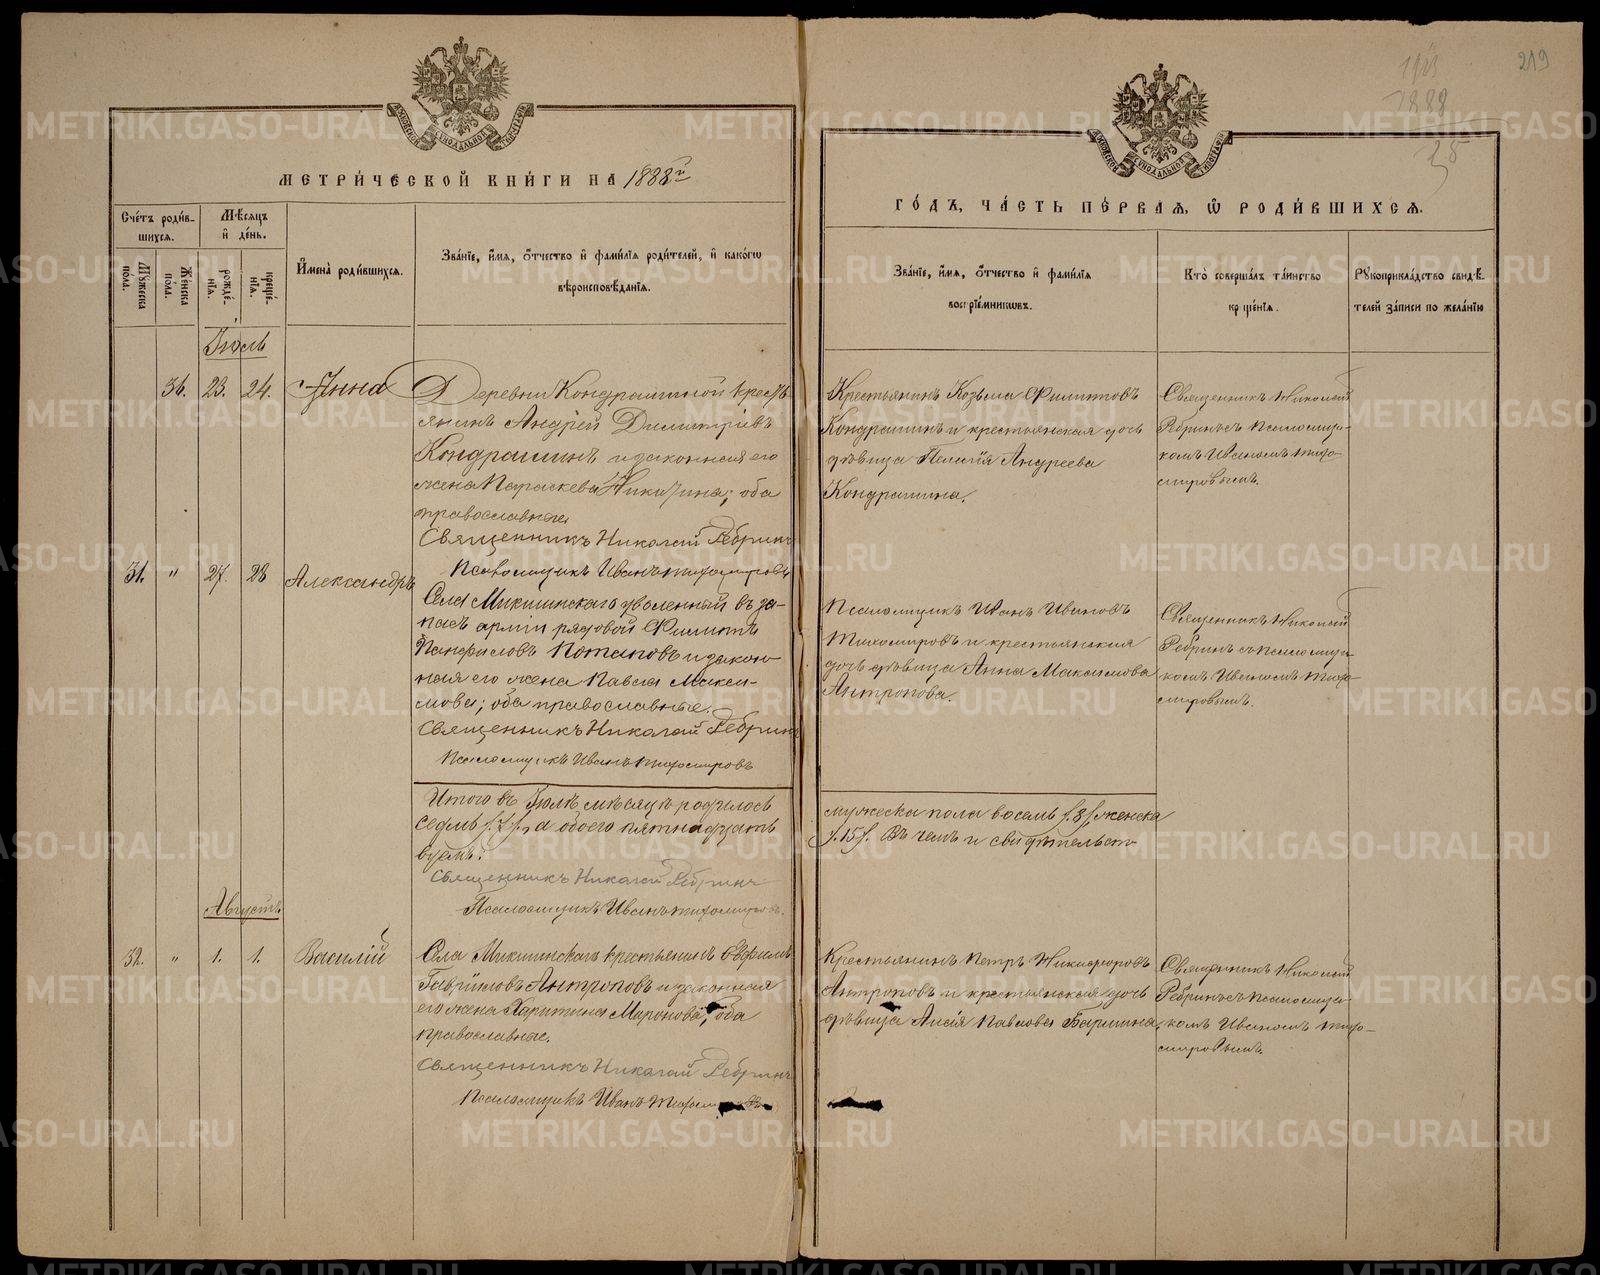 219
1888
МЕТРИ́ЧЕСКОЙ КНИ́ГИ НА 1888й
ГО́ДЪ, ЧА́СТЬ ПЕ́РВАЯ, Ѡ РОДИ́ВШИХСЯ.
Сче́тъ роди́в-
шихся.
Мѣ́сяцъ
и҆ де́нь.
Му́жеска
по́ла.
Же́нска
по́ла.
рожде́-
нїя.
креще́-
нїя.
И҆мена̀ роди́вшихся.
Зва́нїе, и҆́мя, ѻ҆́тчество и҆ фами́лїя роди́телей, и҆ како́гѡ
вѣроисповѣ́данїя.
Зва́нїе, и҆́мя, ѻ҆́тчество и҆ фами́лїя
воспрїе́мникѡвъ.
Кто̀ соверша́лъ та́инство
кр щє́нїя.
Рꙋкоприкла́дство свидѣ́-
телей за́писи по жела́нїю
Іюль
36. 23. 24. Анна
Деревни Кондрашиной кресть
янинъ Андрей Димитріевъ
Кондрашинъ и законная его
жена Параскева Никитина; оба
православные.
Священникъ Николай Ребринъ
Псаломщикъ Иванъ Тихомировъ
Крестьянинъ Козьма Филиповъ
Кондрашинъ и крестьянская дочь
дѣвица Андреева
Кондрашина.
Священникъ Николай
Ребринъ съ псаломщи-
комъ Иваномъ Тихо-
мировымъ.
31. " 27. 28 Александръ
Села Микшинскаго уволенный въ за-
пасъ арміи рядовой Филиппъ
Панфиловъ Потаповъ и закон-
ная его жена Павла Макси-
мова; оба православные.
Священникъ Николай Ребринъ
Псаломщикъ Иванъ Тихомировъ
Псаломщикъ Иванъ Ивановъ
Тихомировъ и крестьянская
дочь дѣвица Анна Максимова
Антропова.
Священникъ Николай
Ребринъ съ псаломщи-
комъ Иваномъ Тихо-
мировымъ.
Итого въ Іюлѣ мѣсяцѣ родилось
мужеска пола восемь /.8/. женска
седмь /.7/., а обоего пятнадцать
/.15/. Въ чемъ и свидѣтельст-
вуемъ:
Священникъ Николай Ребринъ
Псаломщикъ Иванъ Тихомировъ.
Августъ
32. " 1. 1. Василій
Села Микшинскаго крестьянинъ
Гавріиловъ Антроповъ и законная
его жена Харитина Миронова; оба
православные.
Священникъ Николай Ребринъ
Псаломщикъ Иванъ
Крестьянинъ Петръ Никифоровъ
Антроповъ и крестьянская дочь
дѣвица Павлова
Священникъ Николай
Ребринъ съ псаломщи-
комъ Иваномъ Тихо-
мировымъ.
METRIKI.GASO-URAL.RU